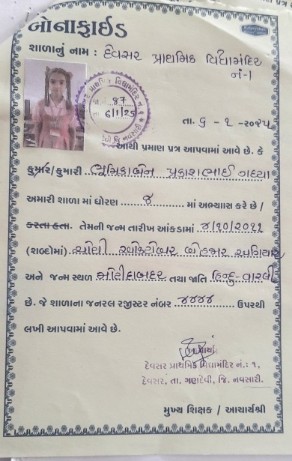 બોનાફાઈડ
શાળાનું નામ : દેવસર પ્રાથમિક વિદ્યામંદિર
નં-1
87
6/1/25
તા. ૬ - ૧ - ૨૦૨૫
આથી પ્રમાણ પત્ર આપવામાં આવે છે. કે
કુમાર/કુમારી પ્રકાશભાઈ
અમારી શાળા માં ધોરણ ૪ માં અભ્યાસ કરે છે /
કરતા હતા. તેમની જન્મ તારીખ આંકડામાં
(શબ્દોમાં) ઓક્ટોબર બે હજાર
અને જન્મ સ્થળ તથા જાતિ હિન્દુ
છે. જે શાળાના જનરલ રજીસ્ટર નંબર ૪૪૪૪ ઉપરથી
લખી આપવામાં આવે છે.
દેવસર પ્રાથમિક વિદ્યામંદિર નં.: ૧,
દેવસર, તા. ગણદેવી, જિ. નવસારી.
મુખ્ય શિક્ષક / આચાર્યશ્રી